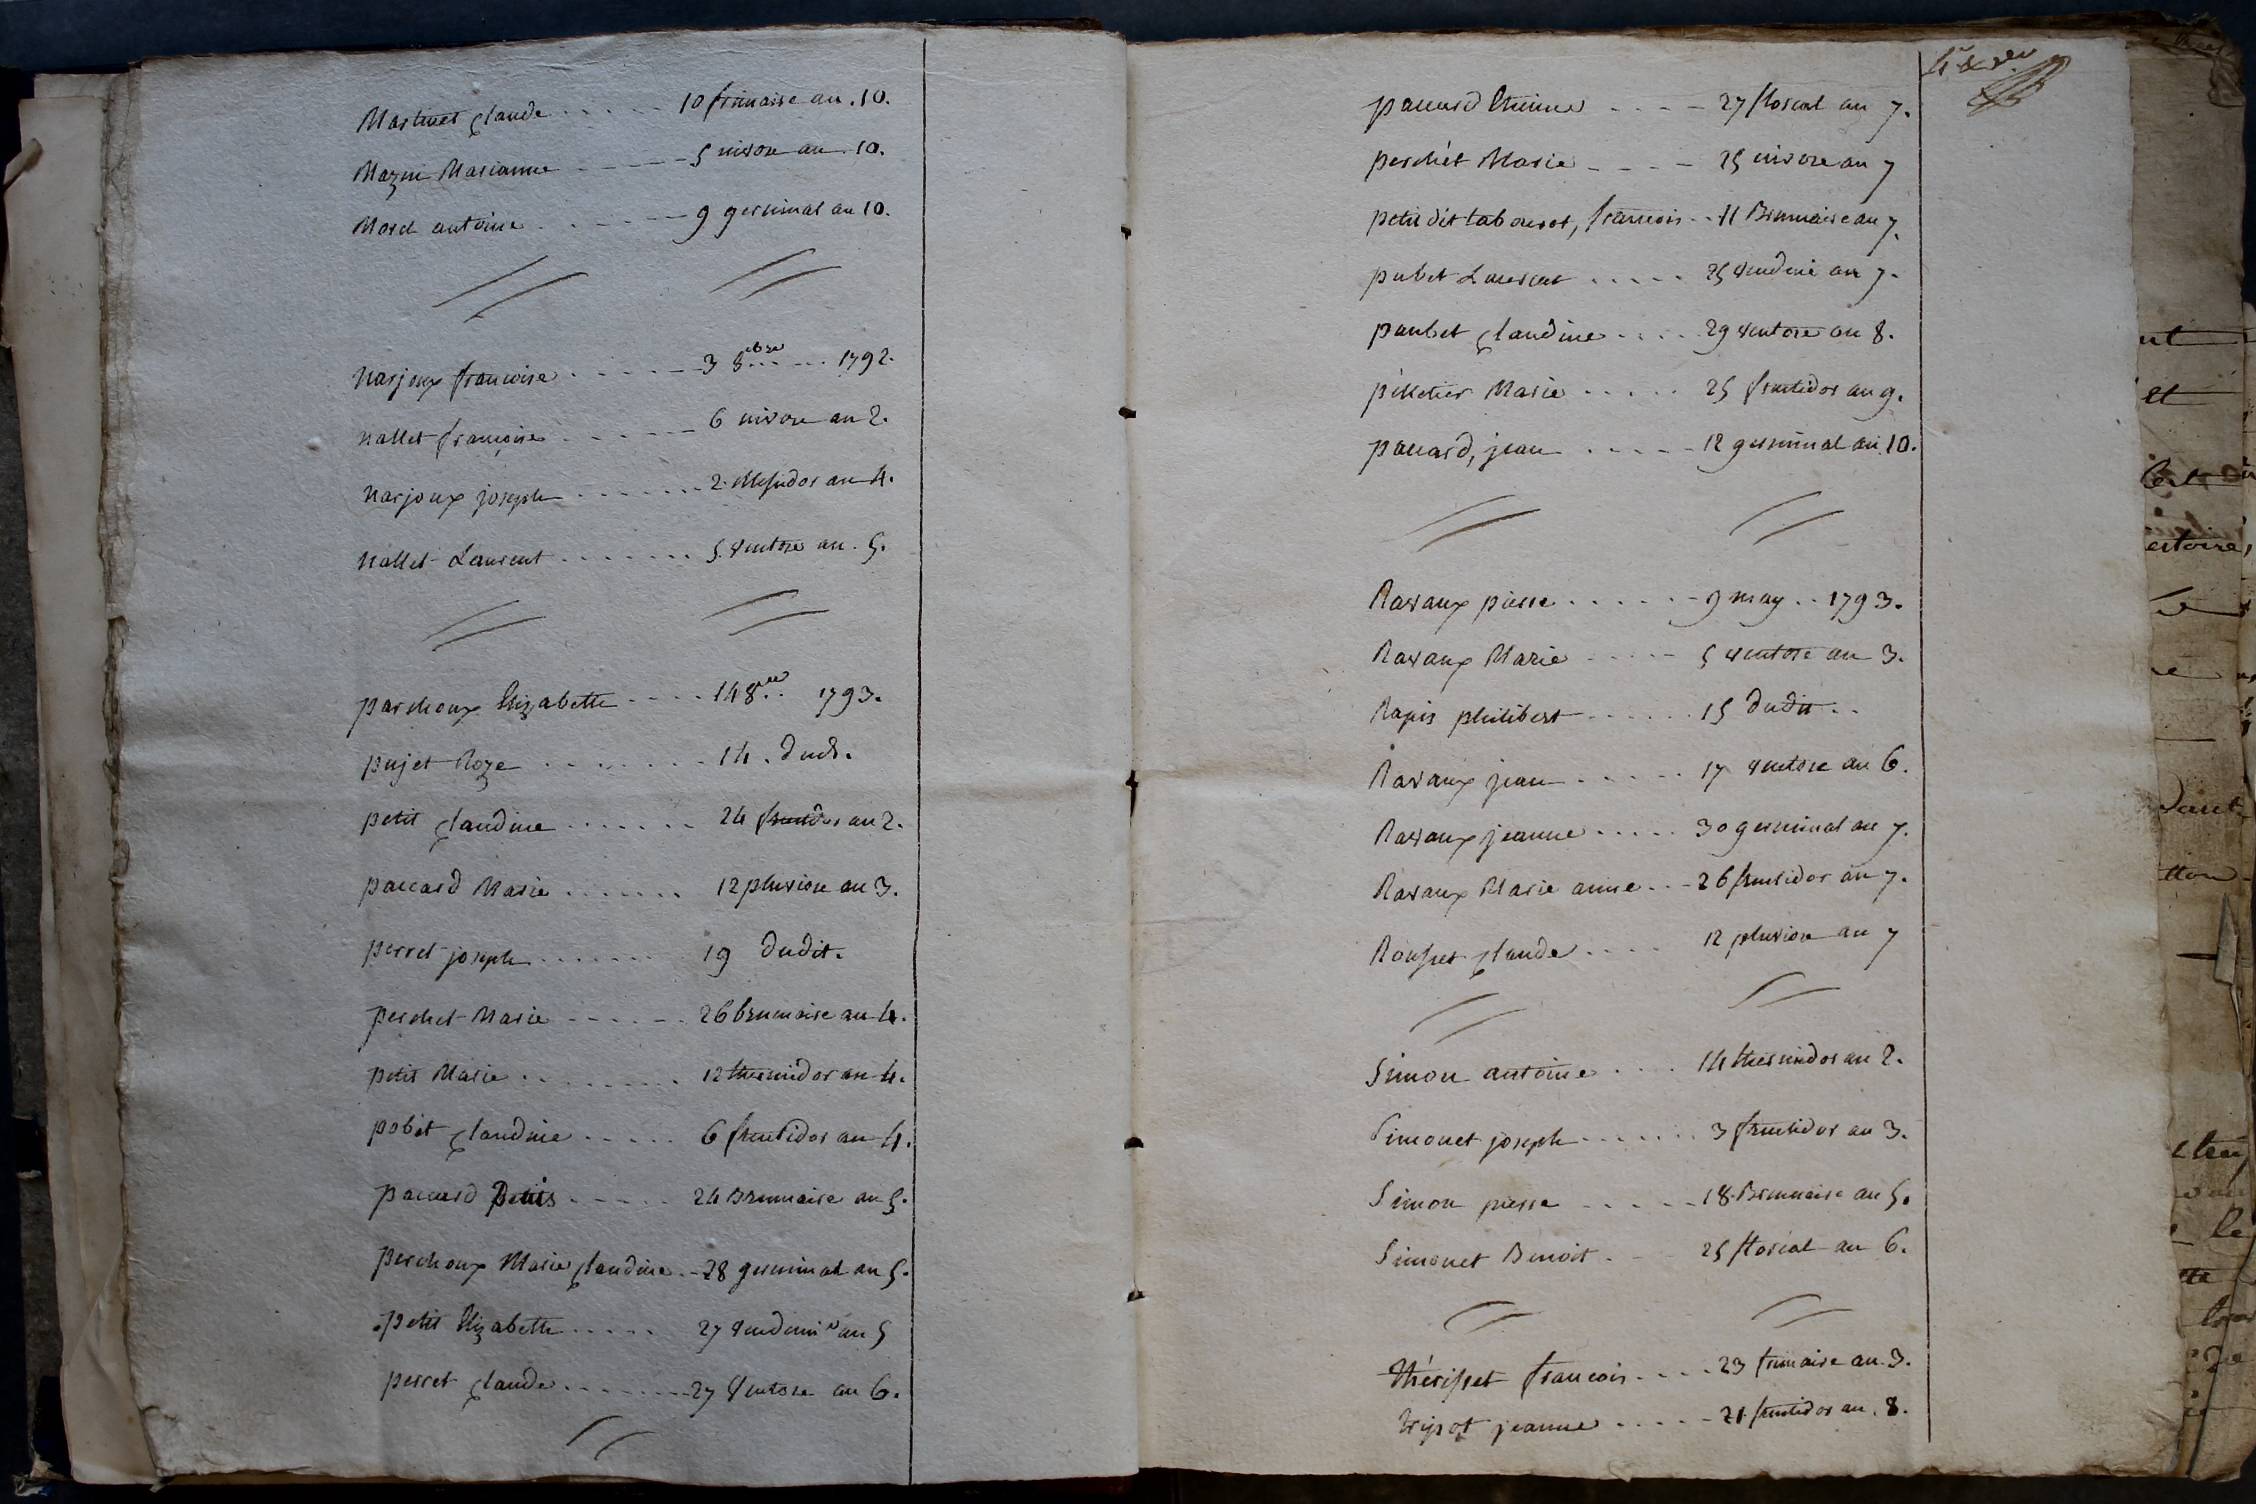 Martinet Claude ..... 10 frimaire an .10.
Mazui Marianne ---- 5 nivose an .10.
Morel antoine ----- 9 germinal an 10.
Narjoux francoise ...... 3 8bre .... 1792.
Nallet françoise ...... 6 nivose an 2.
Narjoux joseph ...... 2 Messidor an 4.
Nallet Laurent ....... 5 ventose an . 5.
parchoux Elizabette .... 14 8bre .. 1793.
pujet Roze ........ 14 . dud.
petit Claudine ....... 24 fructidor an 2.
paccard Marie ....... 12 pluviose an 3.
perret joseph ....... 19 dudit.
perchet Marie ----- 26 brumaire an 4.
petit Marie ........ 12 thermidor an 4.
pobet Claudine ..... 6 fructidor an 4.
paccard Denis ----- 24 Brumaire an 5.
perchoux Marie Claudine .. 28 germinal an 5.
petit Elizabette ..... 27 vendemi an 5
perret Claude ....... 27 Ventose an 6.
paccard Etienne .... 27 floreal an 7.
perchét Marie ---- 25 nivose an 7
petit dit tabouret, francois .. 11 Brumaire an 7.
pubet Laurent ..... 25 vendmé an 7.
paubet Claudine .... 29 ventose an 8.
pélletier Marie ..... 25 fructidor an 9.
paccard, jean ..... 12 germinal an 10.
Ravaux pierre ...... 9 may .. 1793.
Ravaux Marie ----- 5 ventose an 3.
Rapin philibert ...... 15 dudit ..
Ravaux jean ...... 17 ventose an 6.
Ravaux jeanne ..... 30 germinal an 7.
Ravaux Marie anne .. 26 fructidor an 7.
Rousset Claude .... 12 pluviose an 7
Simon antoine .... 14 thermidor an 2.
Simonet joseph ...... 3 fructidor an 3.
Simon pierre ----- 18 Brumaire an 5.
Simonet Benoit . -- 25 floreal an 6.
thérisset francois .... 23 frimaire an 3.
tripot jeanne ..... 21 fructidor an . 8.